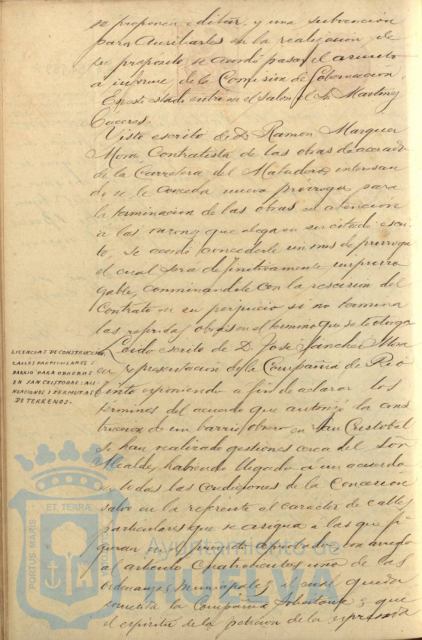 se proponen editar, y una subvención
para auxiliarles en la realización de
su propósito, se acordó pasar el asunto
a informe de la Comisión de Gobernación.
En este estado entró en el salón el Sr. Martinez
Caceres.
Visto escrito de D. Ramon Marquez
Mora, Contratista de las obras de acerado
de la Carretera del Matadero, interesan
do se le conceda nueva prórroga para
la terminación de las obras en atención
a las razones que alega en su citado escri
to, se acordó concederle un mes de prórroga
el cual será definitivamente improrro
gable, conminandole con la rescisión del
Contrato en su perjuicio si no termina
las referidas obras en el termino que se le otorga
LICENCIAS DE CONSTRUCCION
CALLES PARTICULARES
BARRIO PARA OBREROS
EN SAN CRISTOBAL: ALI
NEACIONES Y PERMUTAS
DE TERRENOS.
Leido escrito de D. José Sanchez Mora
en representación de la Compañia de Rio
Tinto exponiendo a fin de aclarar los
terminos del acuerdo que autorizó la cons
trucción de un barrio obrero en San Cristobal
se han realizado gestiones cerca del Señor
Alcalde, habiendo llegado a un acuerdo
en todas las condiciones de la Concesion
salvo en la referente al caracter de calles
particulares que se asigna a las que fi
guran en el proyecto aprobado con arreglo
al articulo Cuatrocientos uno de las
Ordenanzas Municipales, al cual queda
sometida la Compañia solicitante y que
el espiritu de la petición de la expresada
PORTUS MARIS ET TERRAE
Ayuntamiento de
HUELVA